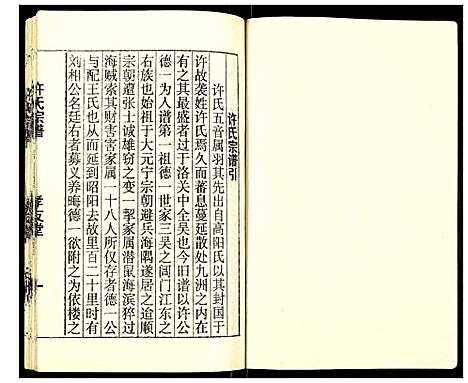 许氏宗谱引
许氏五音属羽其先出自高阳氏以其封国于
许故袭姓许氏焉久而蕃息蔓延散处九洲之内在
有之其最盛者过于洛关中全吴也今旧谱以许公
德一为人谱第一祖德一世家三吴之阊门江东之
右族也始祖于大元宁宗朝避兵海隅遂居之迨顺
宗朝遭张士诚雄窃之变一挈家属潜鼠海滨猝过
海贼索其财害害家属一十八人所仅存者德一公
与配王氏也从而延到昭阳去故里百二十里时有
刘相公名廷右者募义养晦德一欲附之为依楼之
许氏宗谱
孝友堂
一